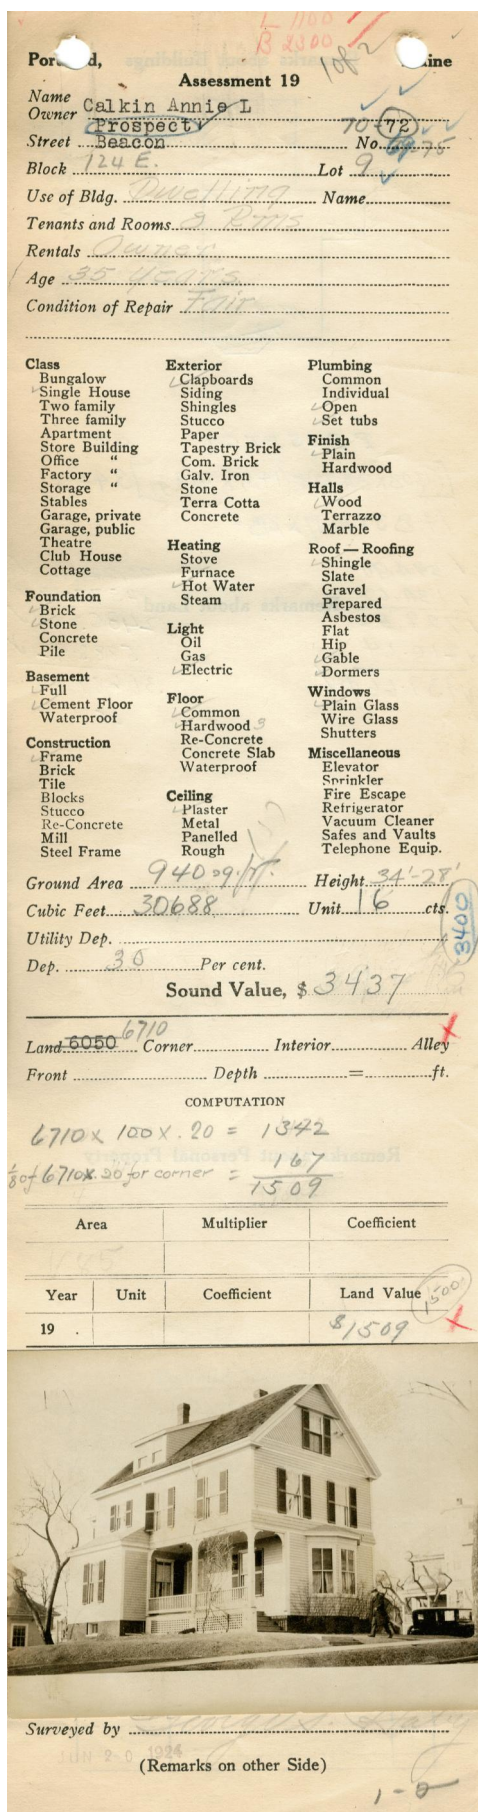 L 1100
B 2300
1 of 2
Portland, Maine
Assessment 19
Name
Owner Calkin Annie L
Prospect 70-72
Street Beacon No. 69-75
Block 124 E. Lot 9
Use of Bldg. Dwelling Name
Tenants and Rooms 8 Rms
Rentals Owner
Age 35 years
Condition of Repair Fair
Class
Bungalow
Single House
Two family
Three family
Apartment
Store Building
Office "
Factory "
Storage "
Stables
Garage, private
Garage, public
Theatre
Club House
Cottage
Foundation
Brick
Stone
Concrete
Pile
Basement
Full
Cement Floor
Waterproof
Construction
Frame
Brick
Tile
Blocks
Stucco
Re-Concrete
Mill
Steel Frame
Exterior
Clapboards
Siding
Shingles
Stucco
Paper
Tapestry Brick
Com. Brick
Galv. Iron
Stone
Terra Cotta
Concrete
Heating
Stove
Furnace
Hot Water
Steam
Light
Oil
Gas
Electric
Floor
Common
Hardwood 3
Re-Concrete
Concrete Slab
Waterproof
Ceiling
Plaster
Metal
Panelled
Rough
Plumbing
Common
Individual
Open
Set tubs
Finish
Plain
Hardwood
Halls
Wood
Terrazzo
Marble
Roof — Roofing
Shingle
Slate
Gravel
Prepared
Asbestos
Flat
Hip
Gable
Dormers
Windows
Plain Glass
Wire Glass
Shutters
Miscellaneous
Elevator
Sprinkler
Fire Escape
Refrigerator
Vacuum Cleaner
Safes and Vaults
Telephone Equip.
Ground Area 940 sq. ft. Height 34'-28'
Cubic Feet 30688 Unit 16 cts.
3400
Utility Dep.
Dep. 30 Per cent.
Sound Value, $ 3437
6710
Land 6050 Corner Interior Alley
Front Depth = ft.
COMPUTATION
6710 x 100 x .20 = 1342
1/8 of 6710 x .20 for corner = 167
1509
Area Multiplier Coefficient
Year Unit Coefficient Land Value 1500
19 . $1509
Surveyed by
JUN 20 1924
(Remarks on other Side)
1-2